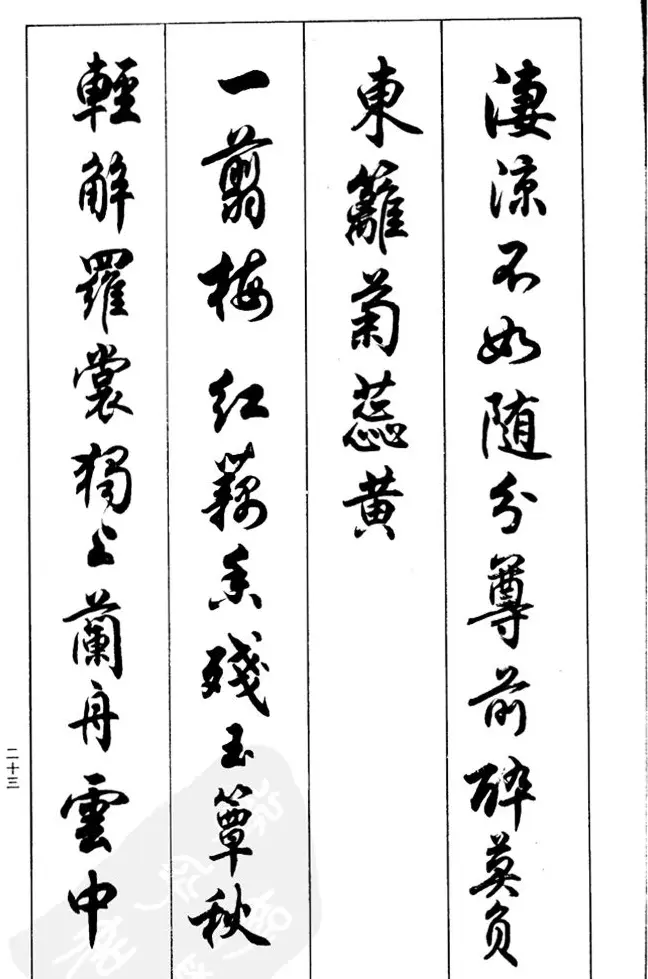 淒涼不如随分尊前醉莫负
東籬菊蕊黄
一翦梅 红藕香殘玉簟秋
輕解羅裳獨上蘭舟雲中
二十三